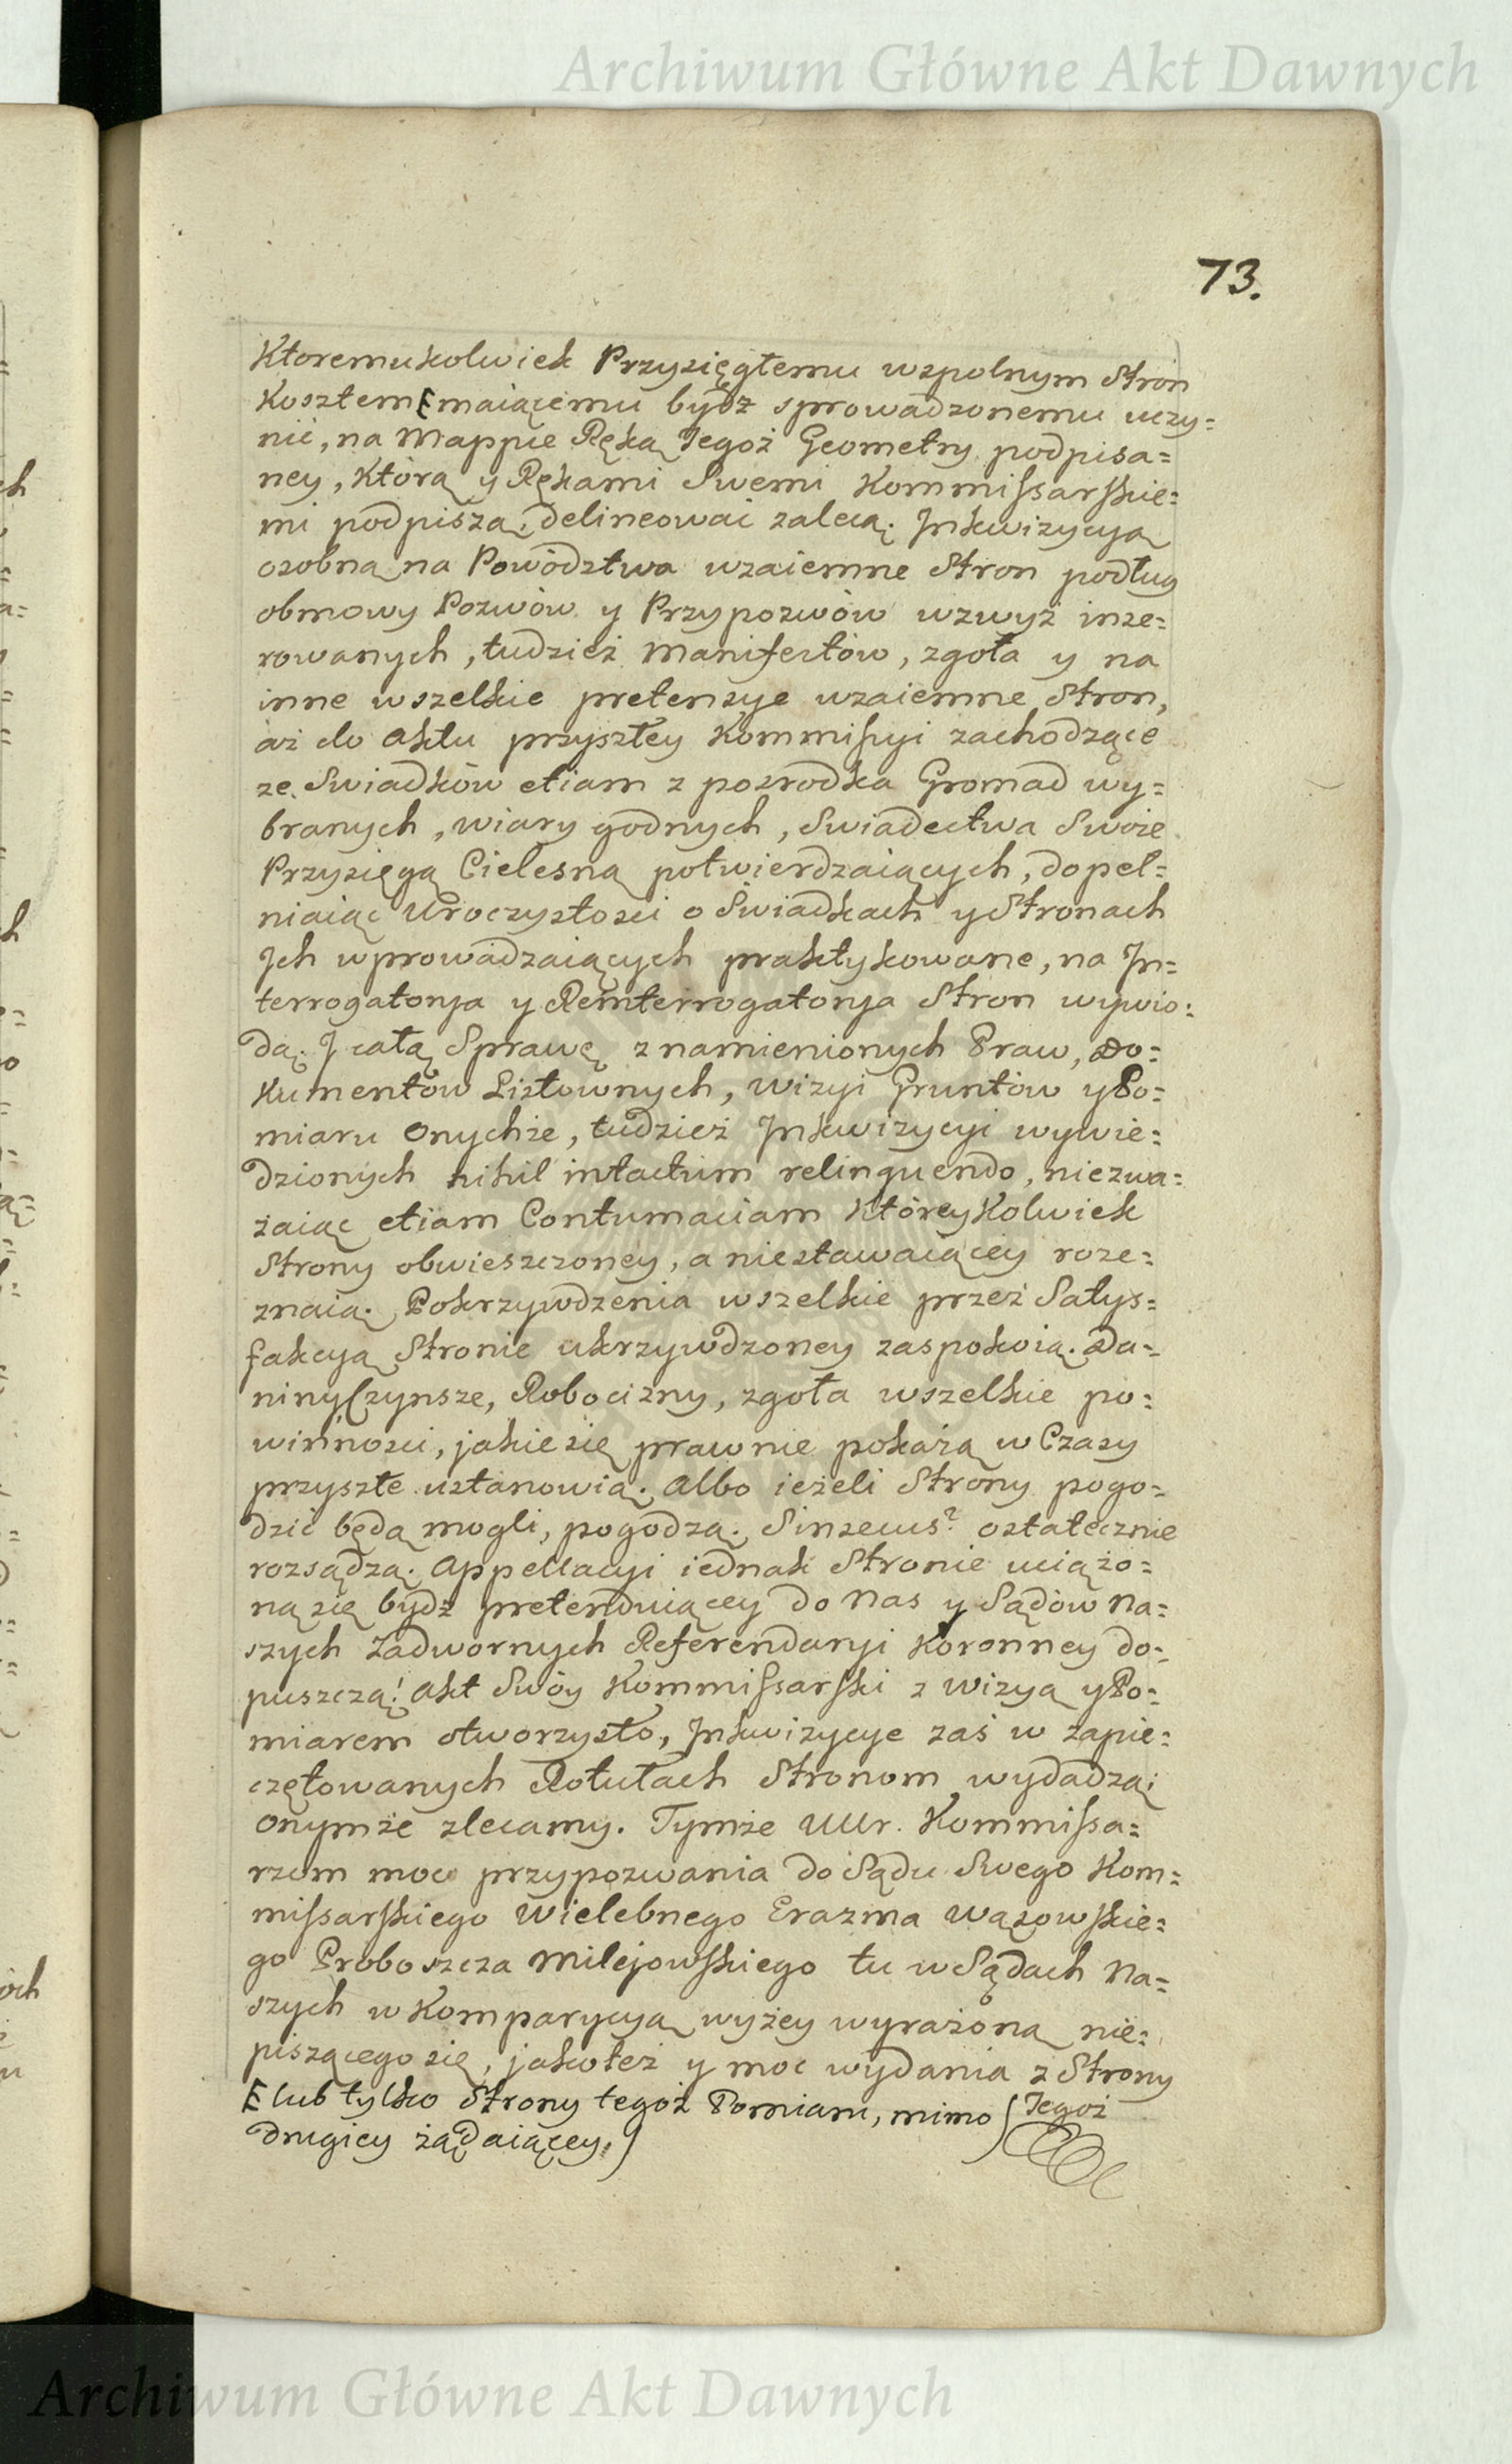 Archiwum Główne Akt Dawnych
73.
Ktoremukolwiek Przysięgłemu wspolnym Stron
Kosztem [ maiącemu bydź sprowadzonemu uczy=
nić, na Mappie Ręką Tegoż Geometry podpisa=
ney, którą y Rękami Swemi Kommissarskie=
mi podpiszą, delineować zalecą. Jnkwizycyą
osobną na Powodztwa wzaiemne Stron podług
obmowy Pozwów y Przypozwów wzwyż inse=
rowanych, tudzież Manifestów, zgoła y na
inne wszelkie pretensye wzaiemne Stron,
aż do Aktu przyszłey Kommissyi zachodzące
ze Swiadków etiam z posrodka Gromad wy=
branych, wiary godnych, Swiadectwa Swoie
Przysięgą Cielesną potwierdzaiących, dopeł=
niaiąc Uroczystosci o Swiadkach y Stronach
Jch wprowadzaiących praktykowane, na Jn=
terrogatorya y Reinterrogatorya Stron wywio=
dą. J całą Sprawę z namienionych Praw, Do=
kumentów Listownych, Wizyi Gruntów y Po=
miaru Onychże, tudzież Jnkwizycyi wywie=
dzionych nihil intactum relinquendo, niezwa=
żaiąc etiam Contumaciam którey kolwiek
Strony obwieszczoney, a niestawaiącey roze=
znaią. Pokrzywdzenia wszelkie przez Satys=
fakcyą Stronie ukrzywdzoney zaspokoią. Da=
niny, Czynsze, Robocizny, zgoła wszelkie po=
winnosci, jakie się prawnie pokażą w Czasy
przyszłe ustanowią. Albo ieżeli Strony pogo=
dzić będą mogli, pogodzą. Sinsecus? ostatecznie
rozsądzą. Appellacyi iednak Stronie uciążo=
ną się bydź pretenduiącey do Nas y Sądów Na=
szych Zadwornych Referendaryi Koronney do=
puszczą! Akt Swóy Kommissarski z Wizyą y Po=
miarem otworzysto, Jnkwizycye zaś w zapie=
czętowanych Rotułach Stronom wydadzą;
Onymże zlecamy. Tymże UUr. Kommissa=
rzom moc przypozwania do Sądu Swego Kom=
missarskiego Wielebnego Erazma Wązowskie=
go Proboszcza Milejowskiego tu w Sądach Na=
szych w Komparycyą wyżey wyrażoną nie=
piszącego się, jakoteż y moc wydania z Strony
[ lub tylko Strony tegoż Pomiaru, mimo ( Tegoż
drugiey żądaiącey. )
Archiwum Główne Akt Dawnych